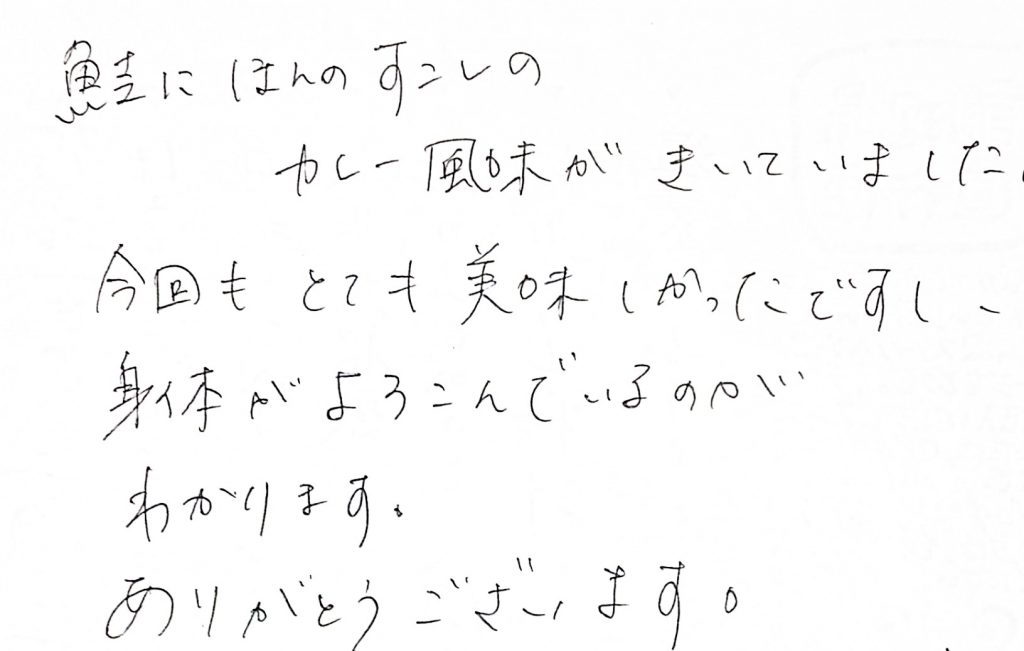 鮭にほんのすこしの
カレー風味がきいていました
今回もとても美味しかったですし、
身体がよろこんでいるのが
わかります。
ありがとうございます。